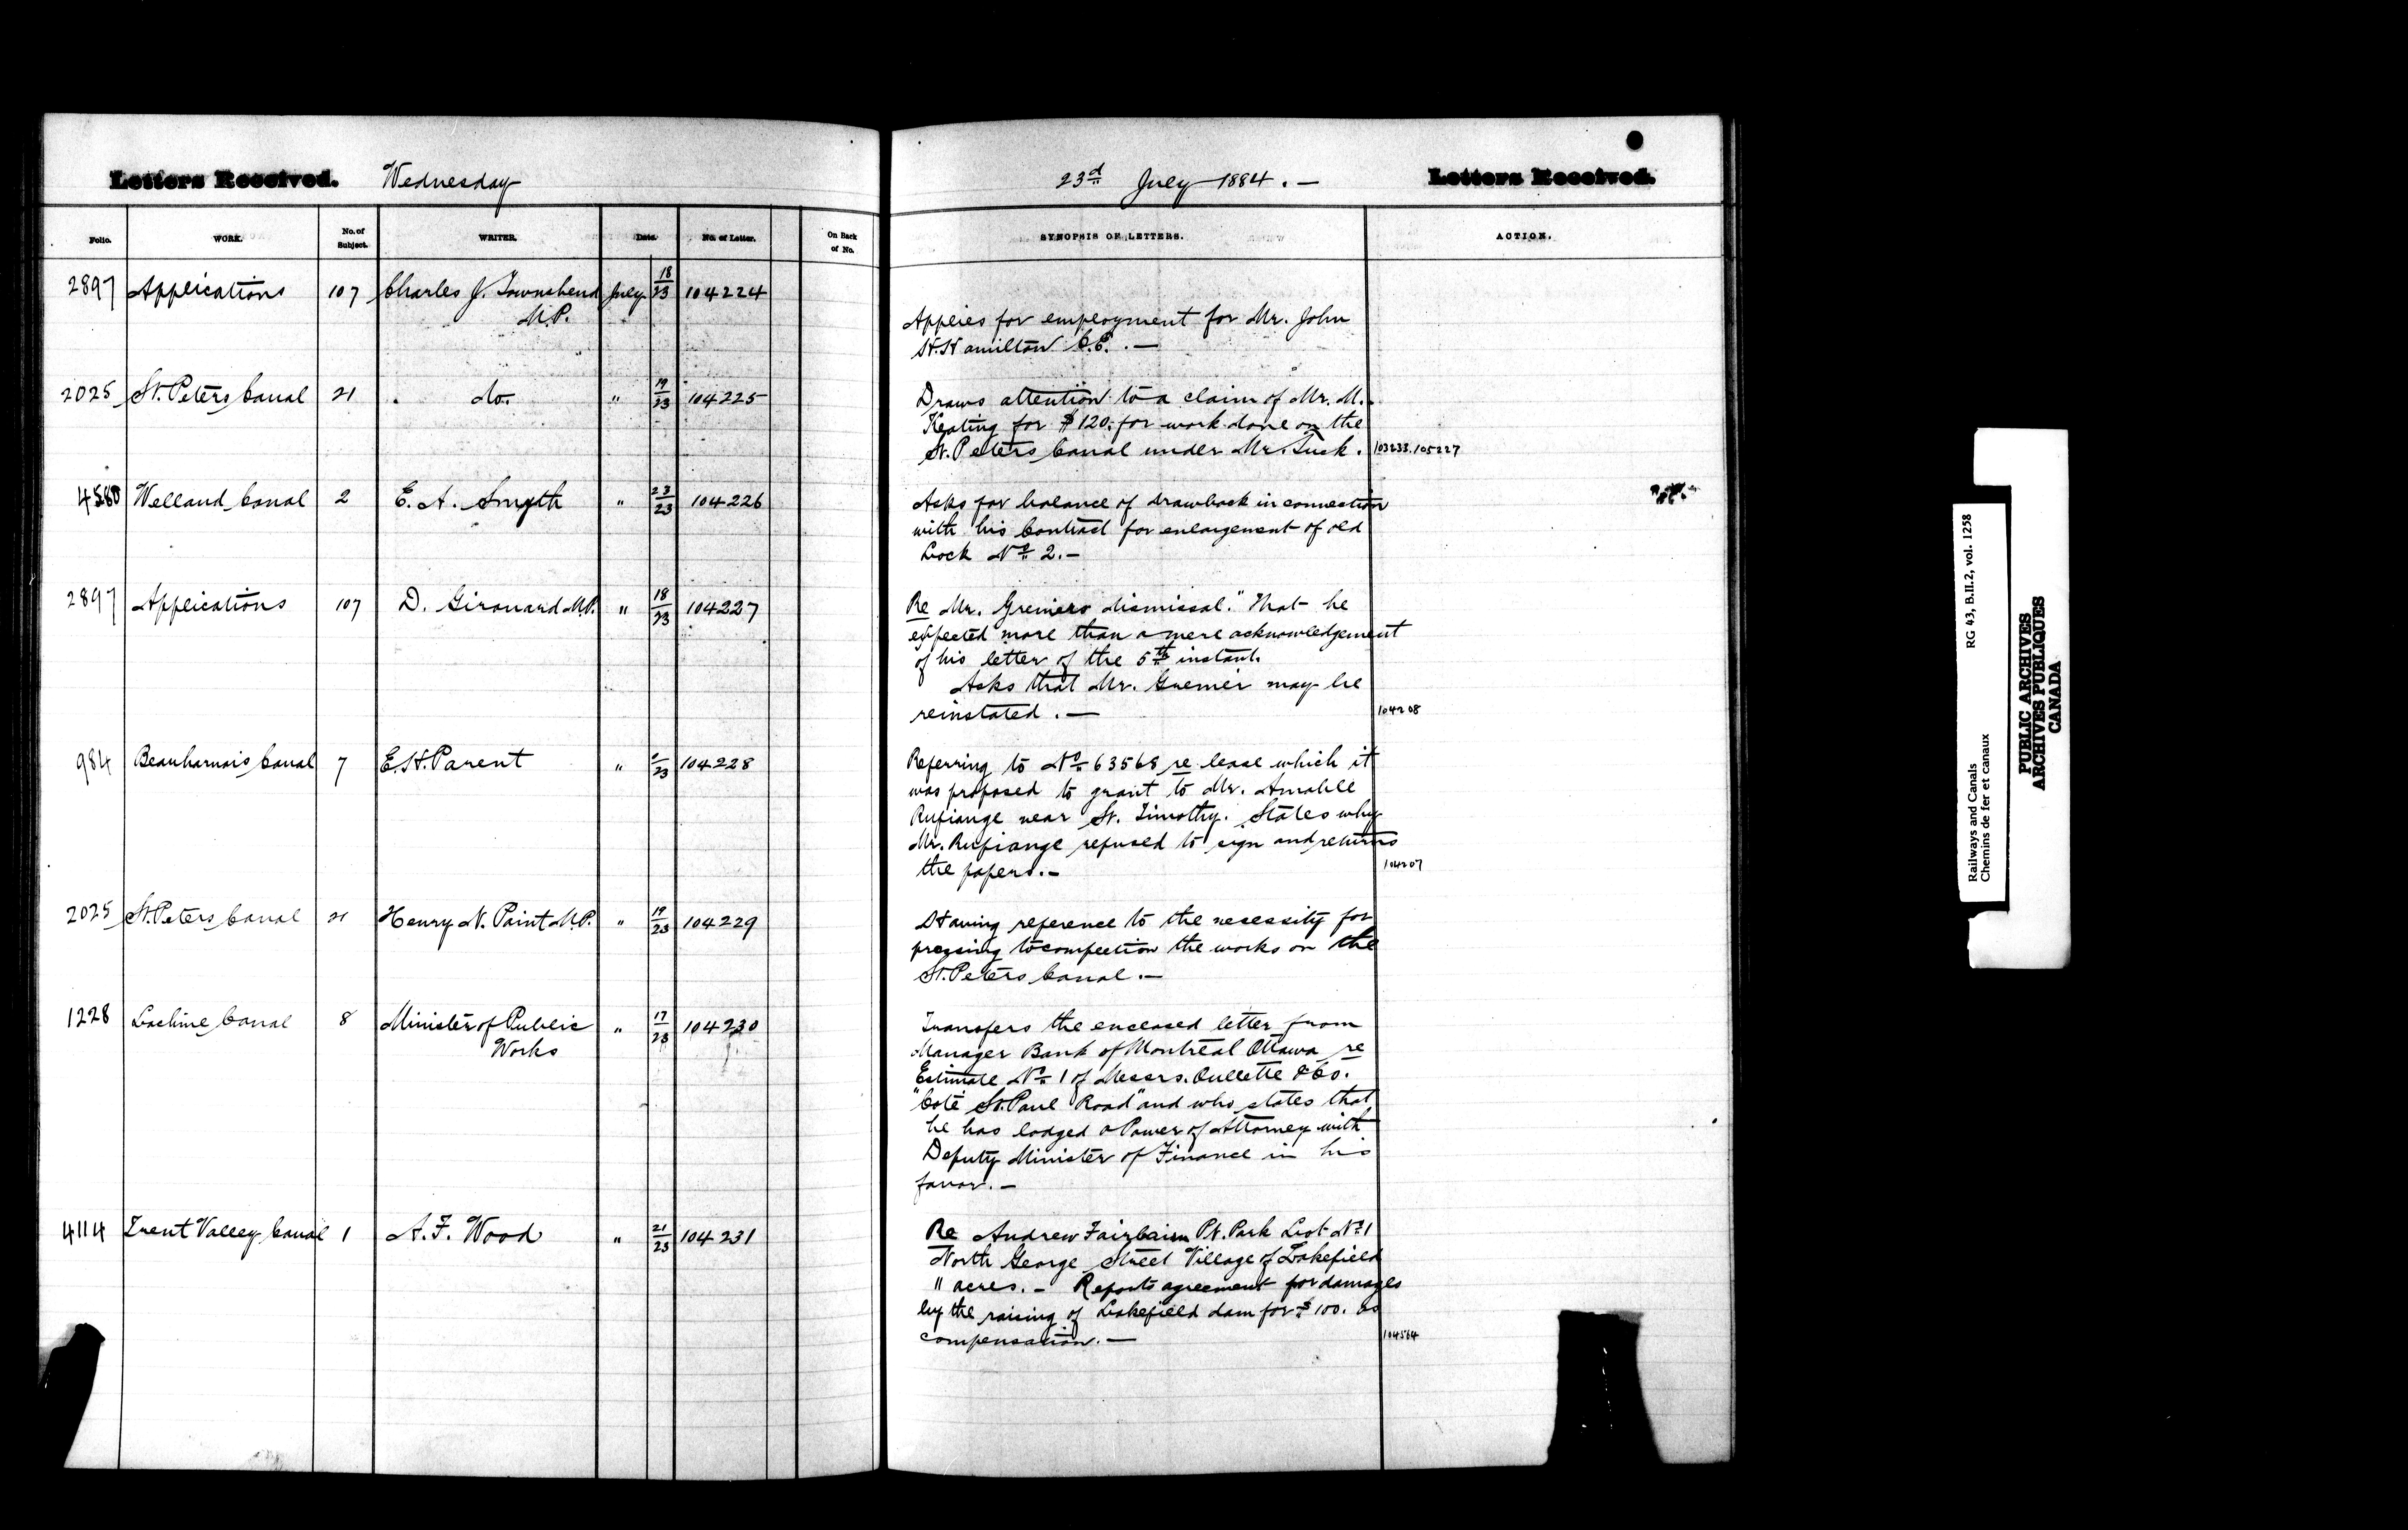 Letters Received. Wednesday 23d July 1884. — Letters Received.
Folio. WORK. No. of Subject. WRITER. Date. No. of Letter. On Back of No. SYNOPSIS OF LETTERS. ACTION.
2897 Applications 107 Charles J. Townshend July 18/23 104224
M.P.
Applies for employment for Mr. John
H. Hamilton C.E. . —
2025 St. Peters Canal 21 do. " 19/23 104225
Draws attention to a claim of Mr. M.
Keating for $120. for work done on the
St. Peters Canal under Mr. Tuck. 103233. 105227
4580 Welland Canal 2 E. A. Smyth " 23/23 104226
Asks for balance of drawback in connection
with his Contract for enlargement of old
Lock No 2. —
2897 Applications 107 D. Girouard M.P. " 18/23 104227
Re Mr. Greniers dismissal." That he
expected more than a mere acknowledgement
of his letter of the 5th instant.
Asks that Mr. Grenier may be
reinstated . — 104208
984 Beauharnois Canal 7 E. H. Parent " /23 104228
Referring to No 63568 re lease which it
was proposed to grant to Mr. Amable
Rufiange near St. Timothy. States why
Mr. Rufiange refused to sign and returns
the papers. — 104207
2025 St. Peters Canal 21 Henry N. Paint M.P. " 19/23 104229
Having reference to the necessity for
pressing to completion the works on the
St. Peters Canal . —
1228 Lachine Canal 8 Minister of Public " 17/23 104230
Works
Transfers the enclosed letter from
Manager Bank of Montreal Ottawa re
Estimate No 1 of Messrs. Oullette & Co.
"Coté St. Paul Road" and who states that
he has lodged a Power of Attorney with
Deputy Minister of Finance in his
favor. —
4114 Trent Valley Canal 1 A. F. Wood " 21/23 104231
Re Andrew Fairbairn Pt. Park Lot No 1
North George Street Village of Lakefield
" acres. — Reports agreement for damages
by the raising of Lakefield dam for $100. as
compensation. — 104564
Railways and Canals RG 43, B.II.2, vol. 1258
Chemins de fer et canaux
PUBLIC ARCHIVES
ARCHIVES PUBLIQUES
CANADA